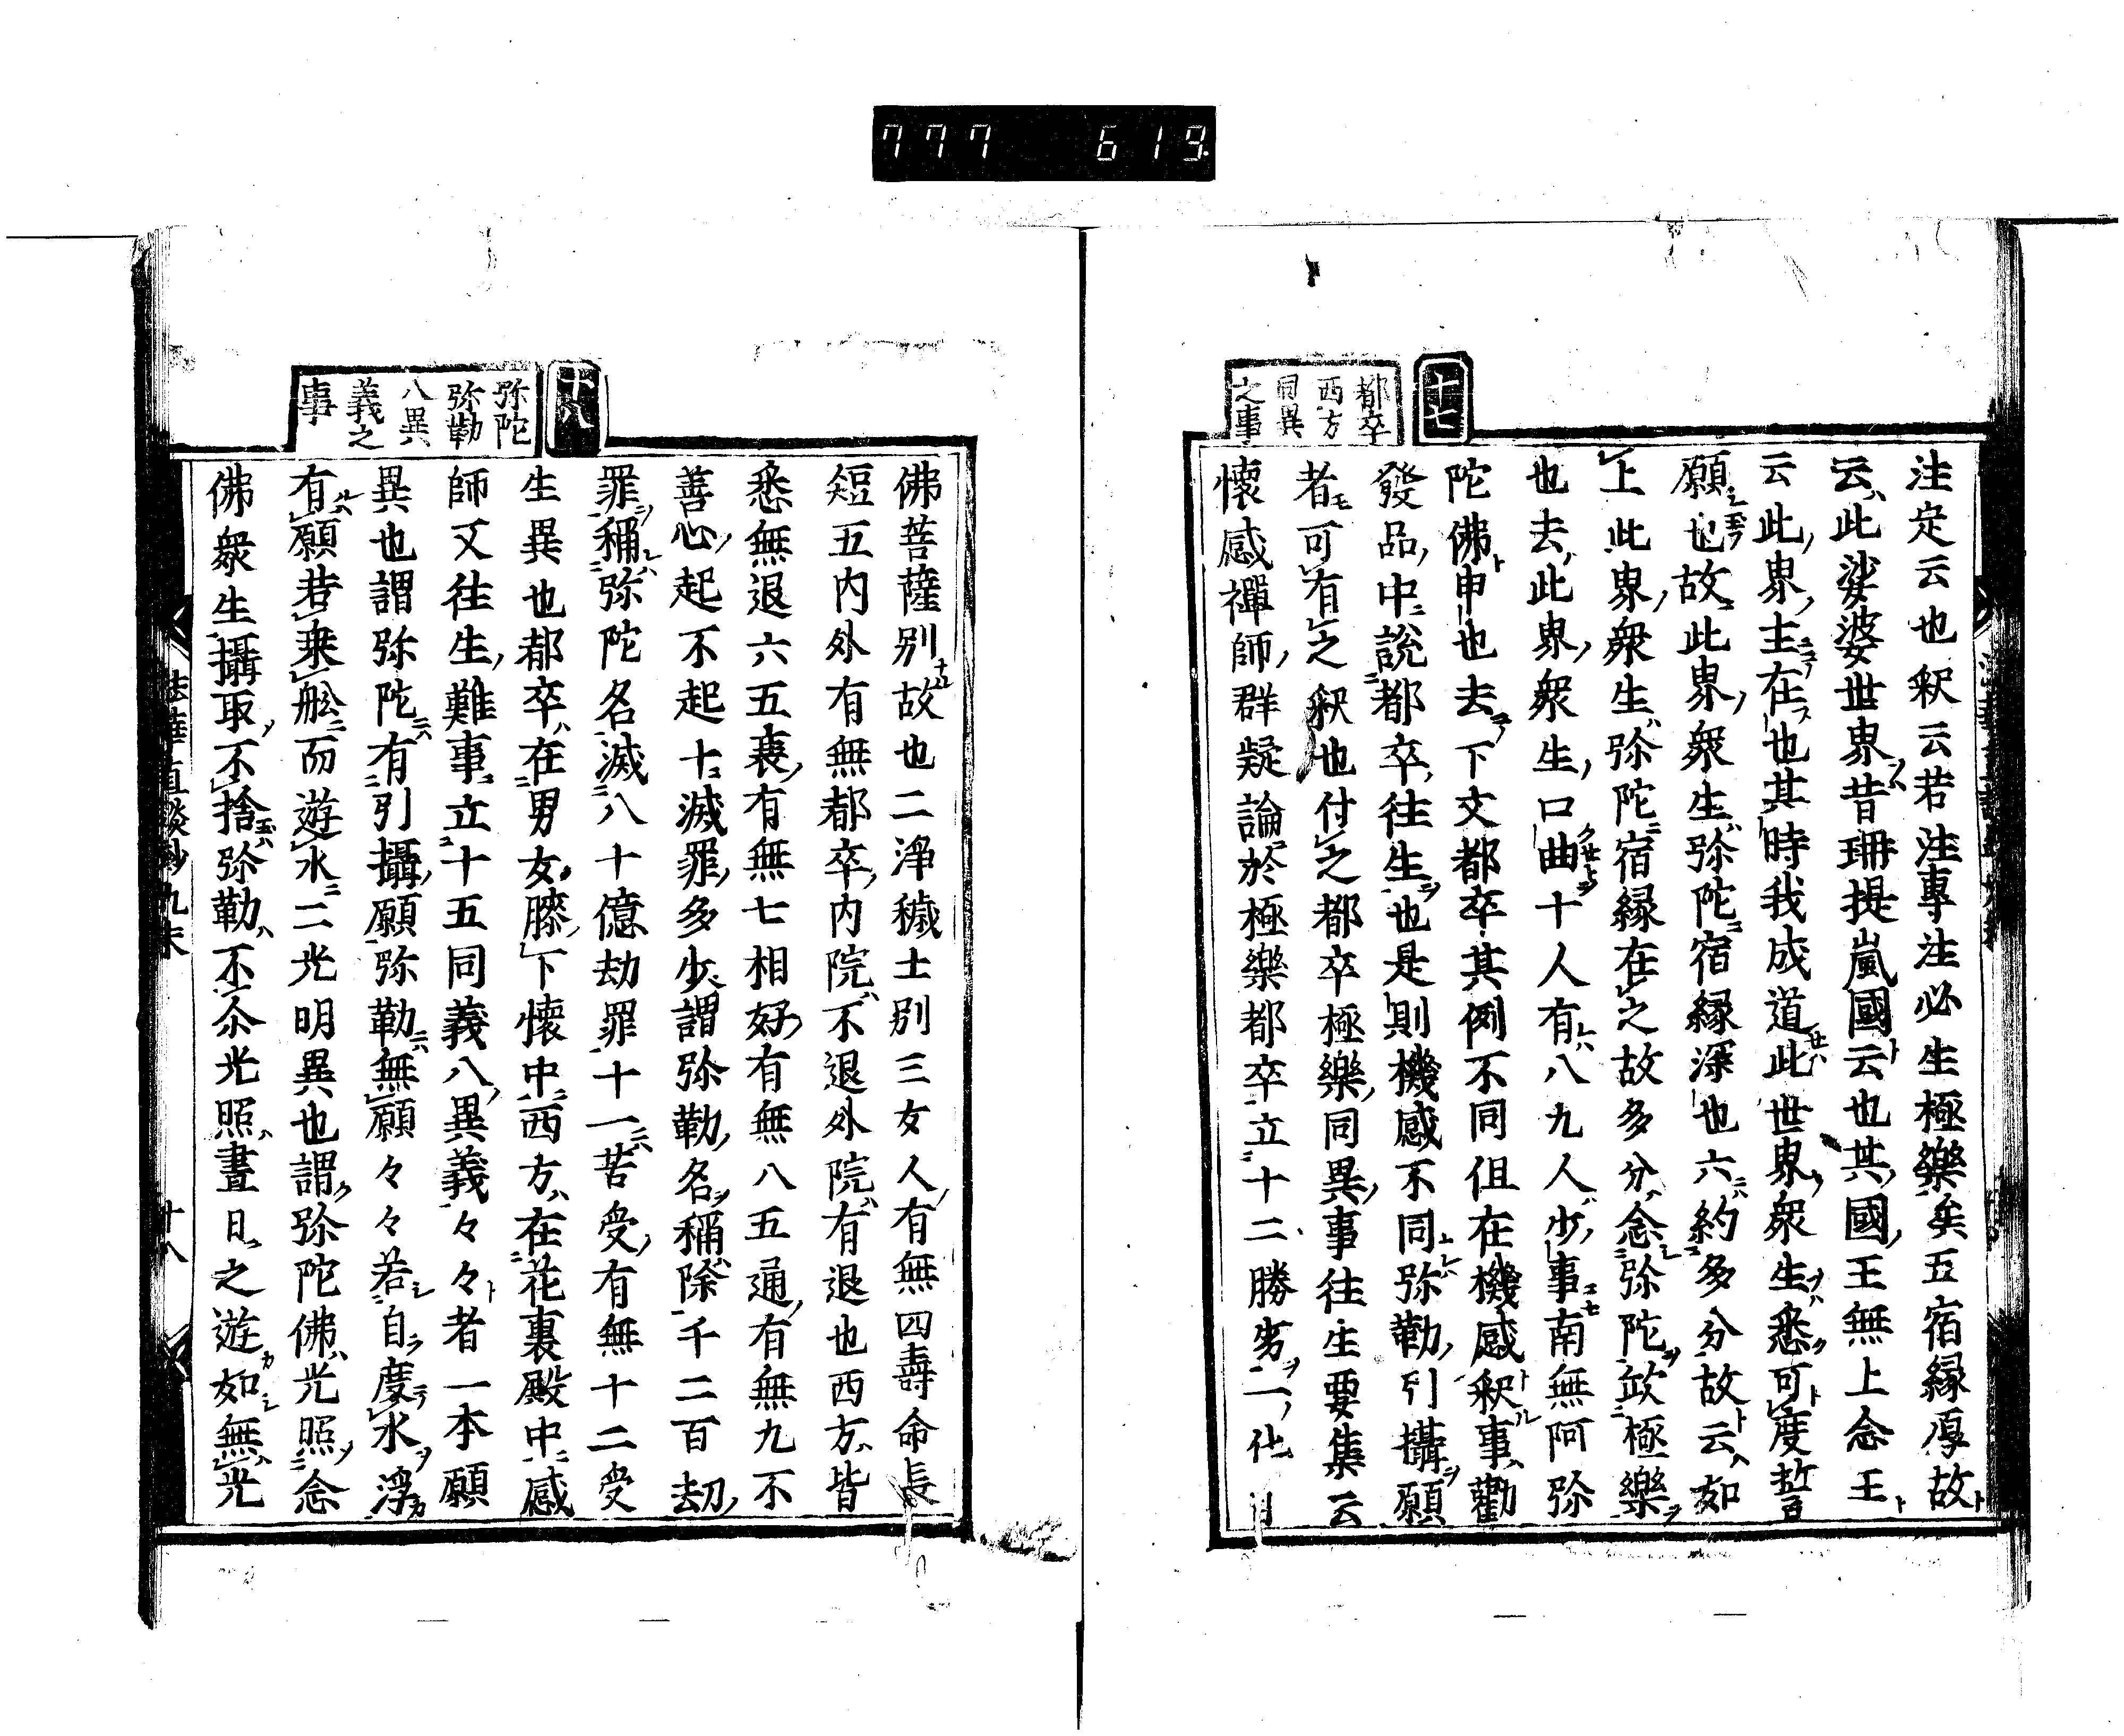 777 619
十七
都卒
西方
同異
之事
注定云也釈云若注專注必生極樂矣五宿縁厚故
云此娑婆世界昔珊提嵐國云也其國王無上念王
云此界主在也其時我成道此世界衆生悉可度誓
願也故此界衆生弥陀宿縁深也六約多分故云如
上此界衆生弥陀宿縁在之故多分念弥陀欣極樂
也去此界衆生口曲十人有八九人少事南無阿弥
陀佛申也去下文都卒其例不同但在機感釈事勸
發品中説都卒往生也是則機感不同弥勒引攝願
者可有之釈也付之都卒極樂同異事往生要集云
懷感禪師群疑論於極樂都卒立十二勝劣一化
十八
弥陀
弥勒
八異
義之
事
佛菩薩別故也二淨穢土別三女人有無四壽命長
短五内外有無都卒内院不退外院有退也西方皆
悉無退六五衰有無七相好有無八五通有無九不
善心起不起十滅罪多少謂弥勒名稱除千二百劫
罪稱弥陀名滅八十億劫罪十一苦受有無十二受
生異也都卒在男女膝下懷中西方在花裏殿中感
師又往生難事立十五同義八異義々々者一本願
異也謂弥陀有引攝願弥勒無願々々若自度水浮
有願者乘舩而遊水二光明異也謂弥陀佛光照念
佛衆生攝取不捨弥勒不尒光照晝日之遊如無光
法華直談鈔九末
十八